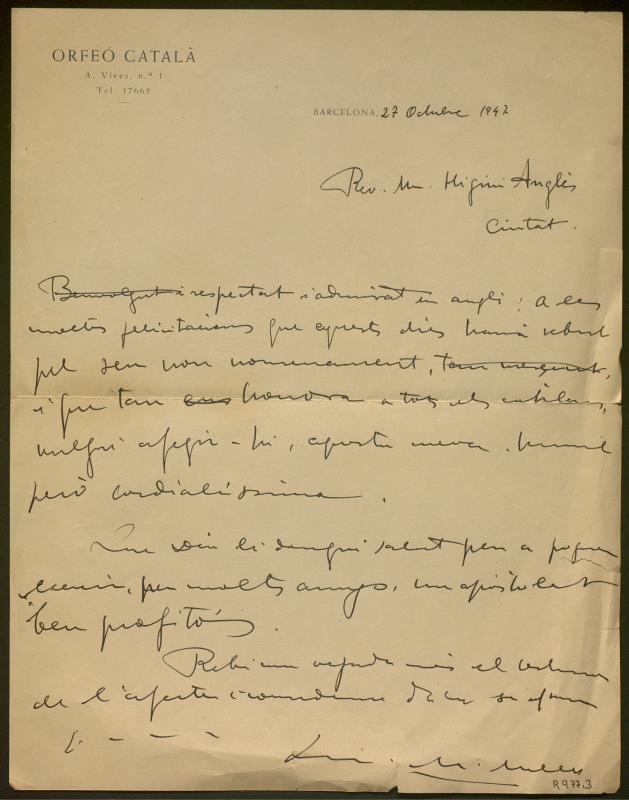 ORFEÓ CATALÀ
A. Vives, n.º 1
Tel. 17661
BARCELONA, 27 Octubre 1947
Rev. Mn. Higini Anglès
Ciutat.
Benvolgut i respectat i admirat en : a les
moltes felicitacions que aquests dies haurà rebut
pel seu nou nomenament, tan merescut,
i que tan ens honora a tots els catalans,
vulgui afegir-hi, aquesta meva, humil
però cordialíssima.
Que Déu li dongui salut per a poguer
exercir, per molts anys, un apostolat
ben profitós.
Rebi una vegada més el
de l'afecte i d'en
Ll. M. Millet
R 977.3